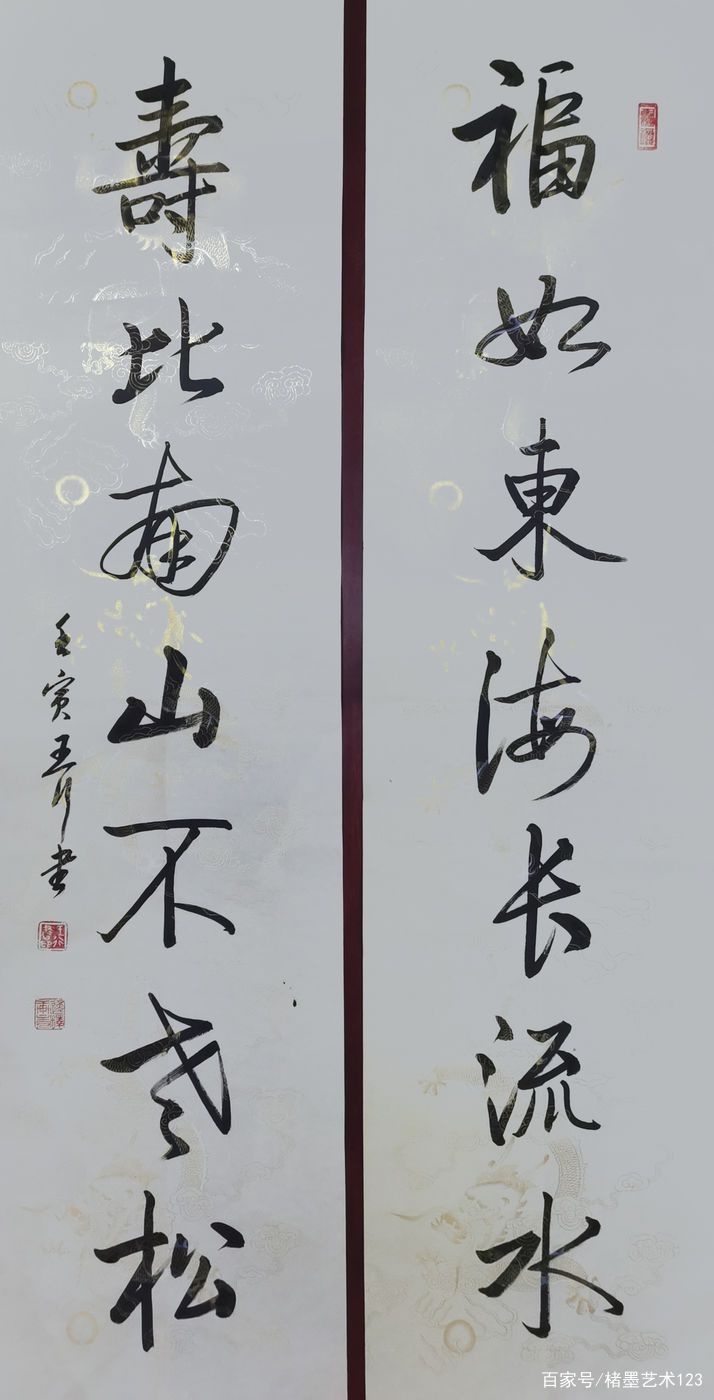 福如東海长流水
壽比南山不老松
壬寅王行书
百家号/楮墨艺术123